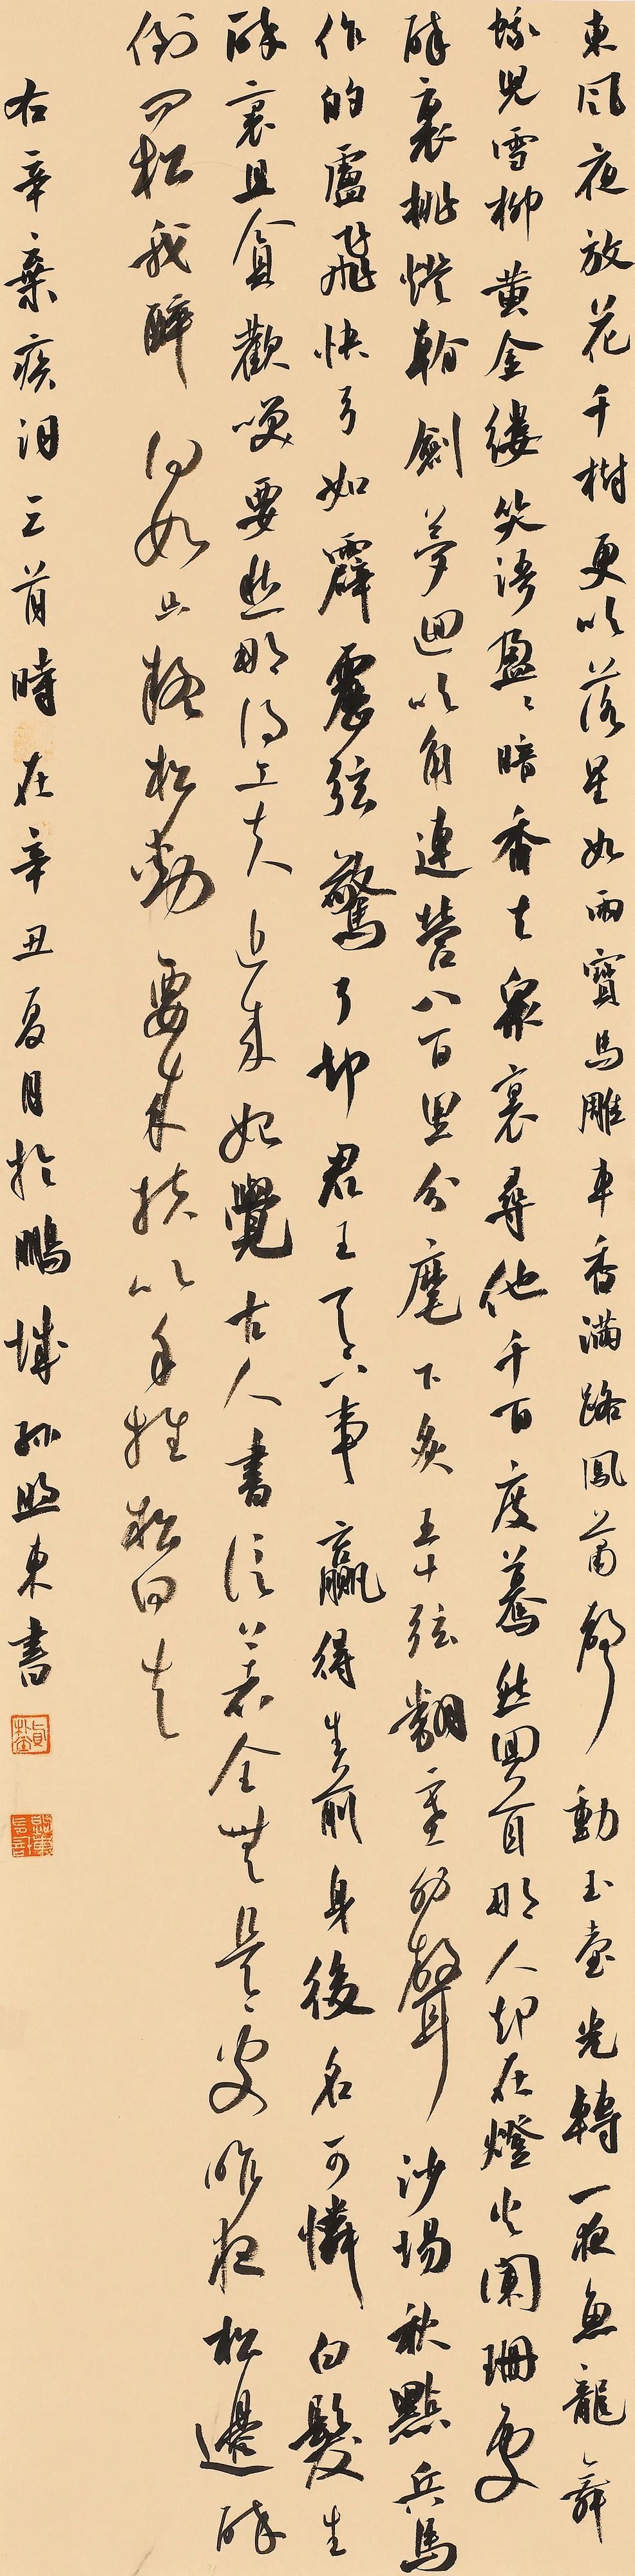 東風夜放花千樹更吹落星如雨寶馬雕車香滿路鳳簫聲動玉壺光轉一夜魚龍舞
蛾兒雪柳黃金縷笑語盈〻暗香去衆裏尋他千百度驀然回首那人却在燈火闌珊處
醉裏挑燈看劍夢迴吹角連營八百里分麾下炙五十弦翻塞外聲沙場秋點兵馬
作的盧飛快弓如霹靂弦驚了却君王天下事贏得生前身後名可憐白髮生
醉裏且貪歡笑要愁那得工夫近來始覺古人書信著全無是〻處昨夜松邊醉
倒問松我醉何如只疑松動要來扶以手推松曰去
右辛棄疾詞三首時在辛丑夏月於鵬城孫照東書